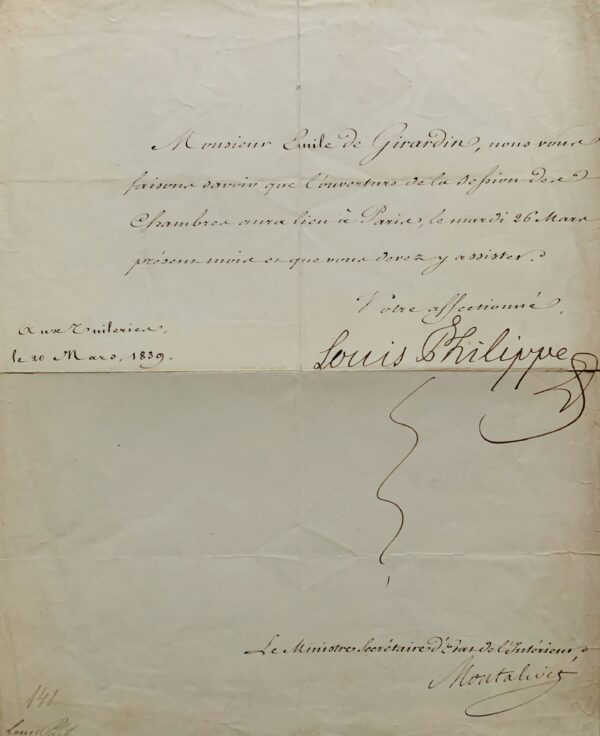 Monsieur Emile de Girardin, nous vous
faisons savoir que l'ouverture de la Session des
Chambres aura lieu à Paris, le mardi 26 Mars
présent mois et que vous devez y assister.
Votre affectionné,
Aux Tuileries,
le 20 Mars, 1839.
Louis Philippe
Le Ministre Secrétaire d'Etat de l'Intérieur,
Montalivet
141
Louis